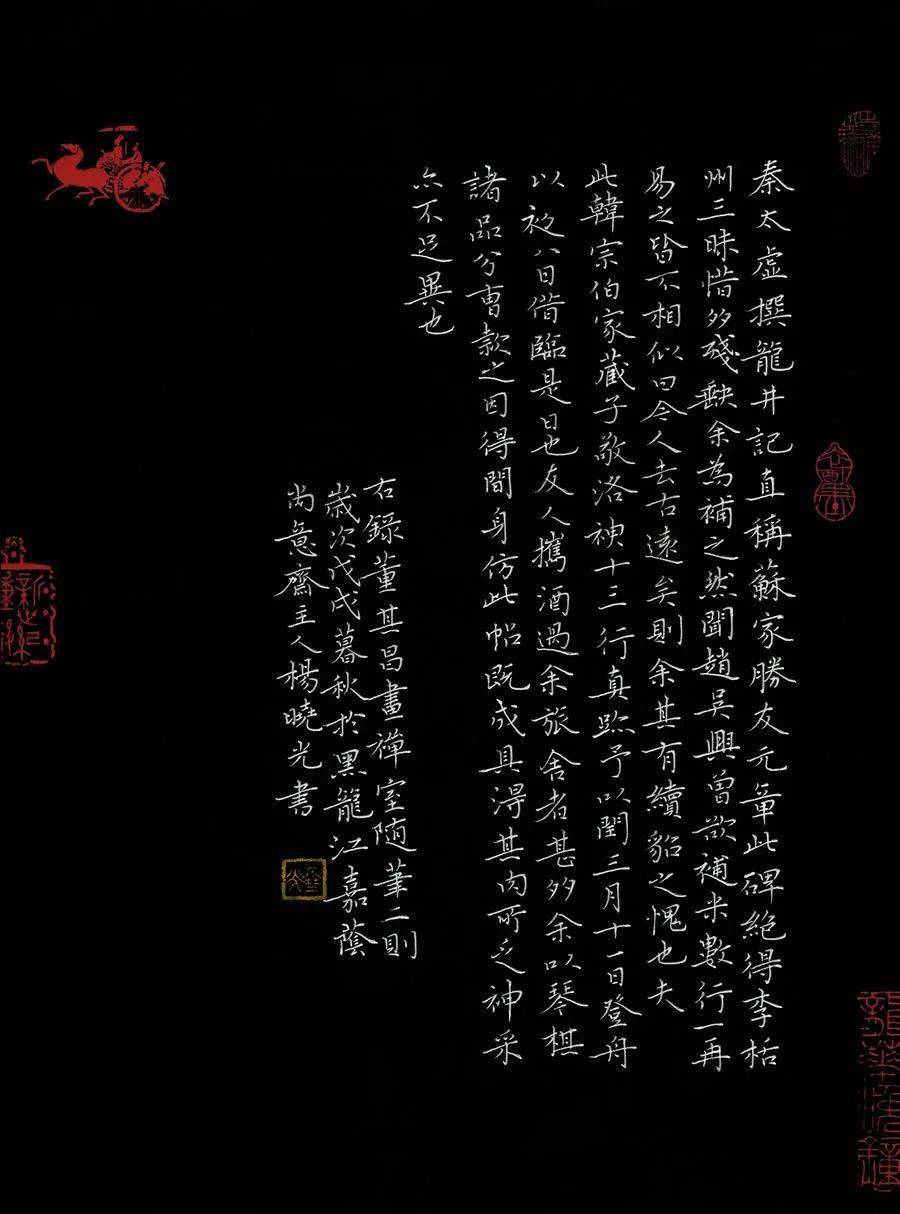 秦太虛撰龍井記直稱蘇家勝友元章此碑絕得李栝
州三昧惜多殘缺余為補之然聞趙吳興曾欲補米數行一再
易之皆不相似曰今人去古遠矣則余其有續貂之愧也夫
此韓宗伯家藏子敬洛神十三行真跡予以閏三月十一日登舟
以初八日借臨是日也友人攜酒過余旅舍者甚多余以琴棋
諸品分曹款之因得閒身仿此帖既成具淂其肉所乏神采
亦不足異也
右錄董其昌畫禪室随筆二則
歲次戊戌暮秋於黑龍江嘉蔭
尚意齋主人楊曉光書